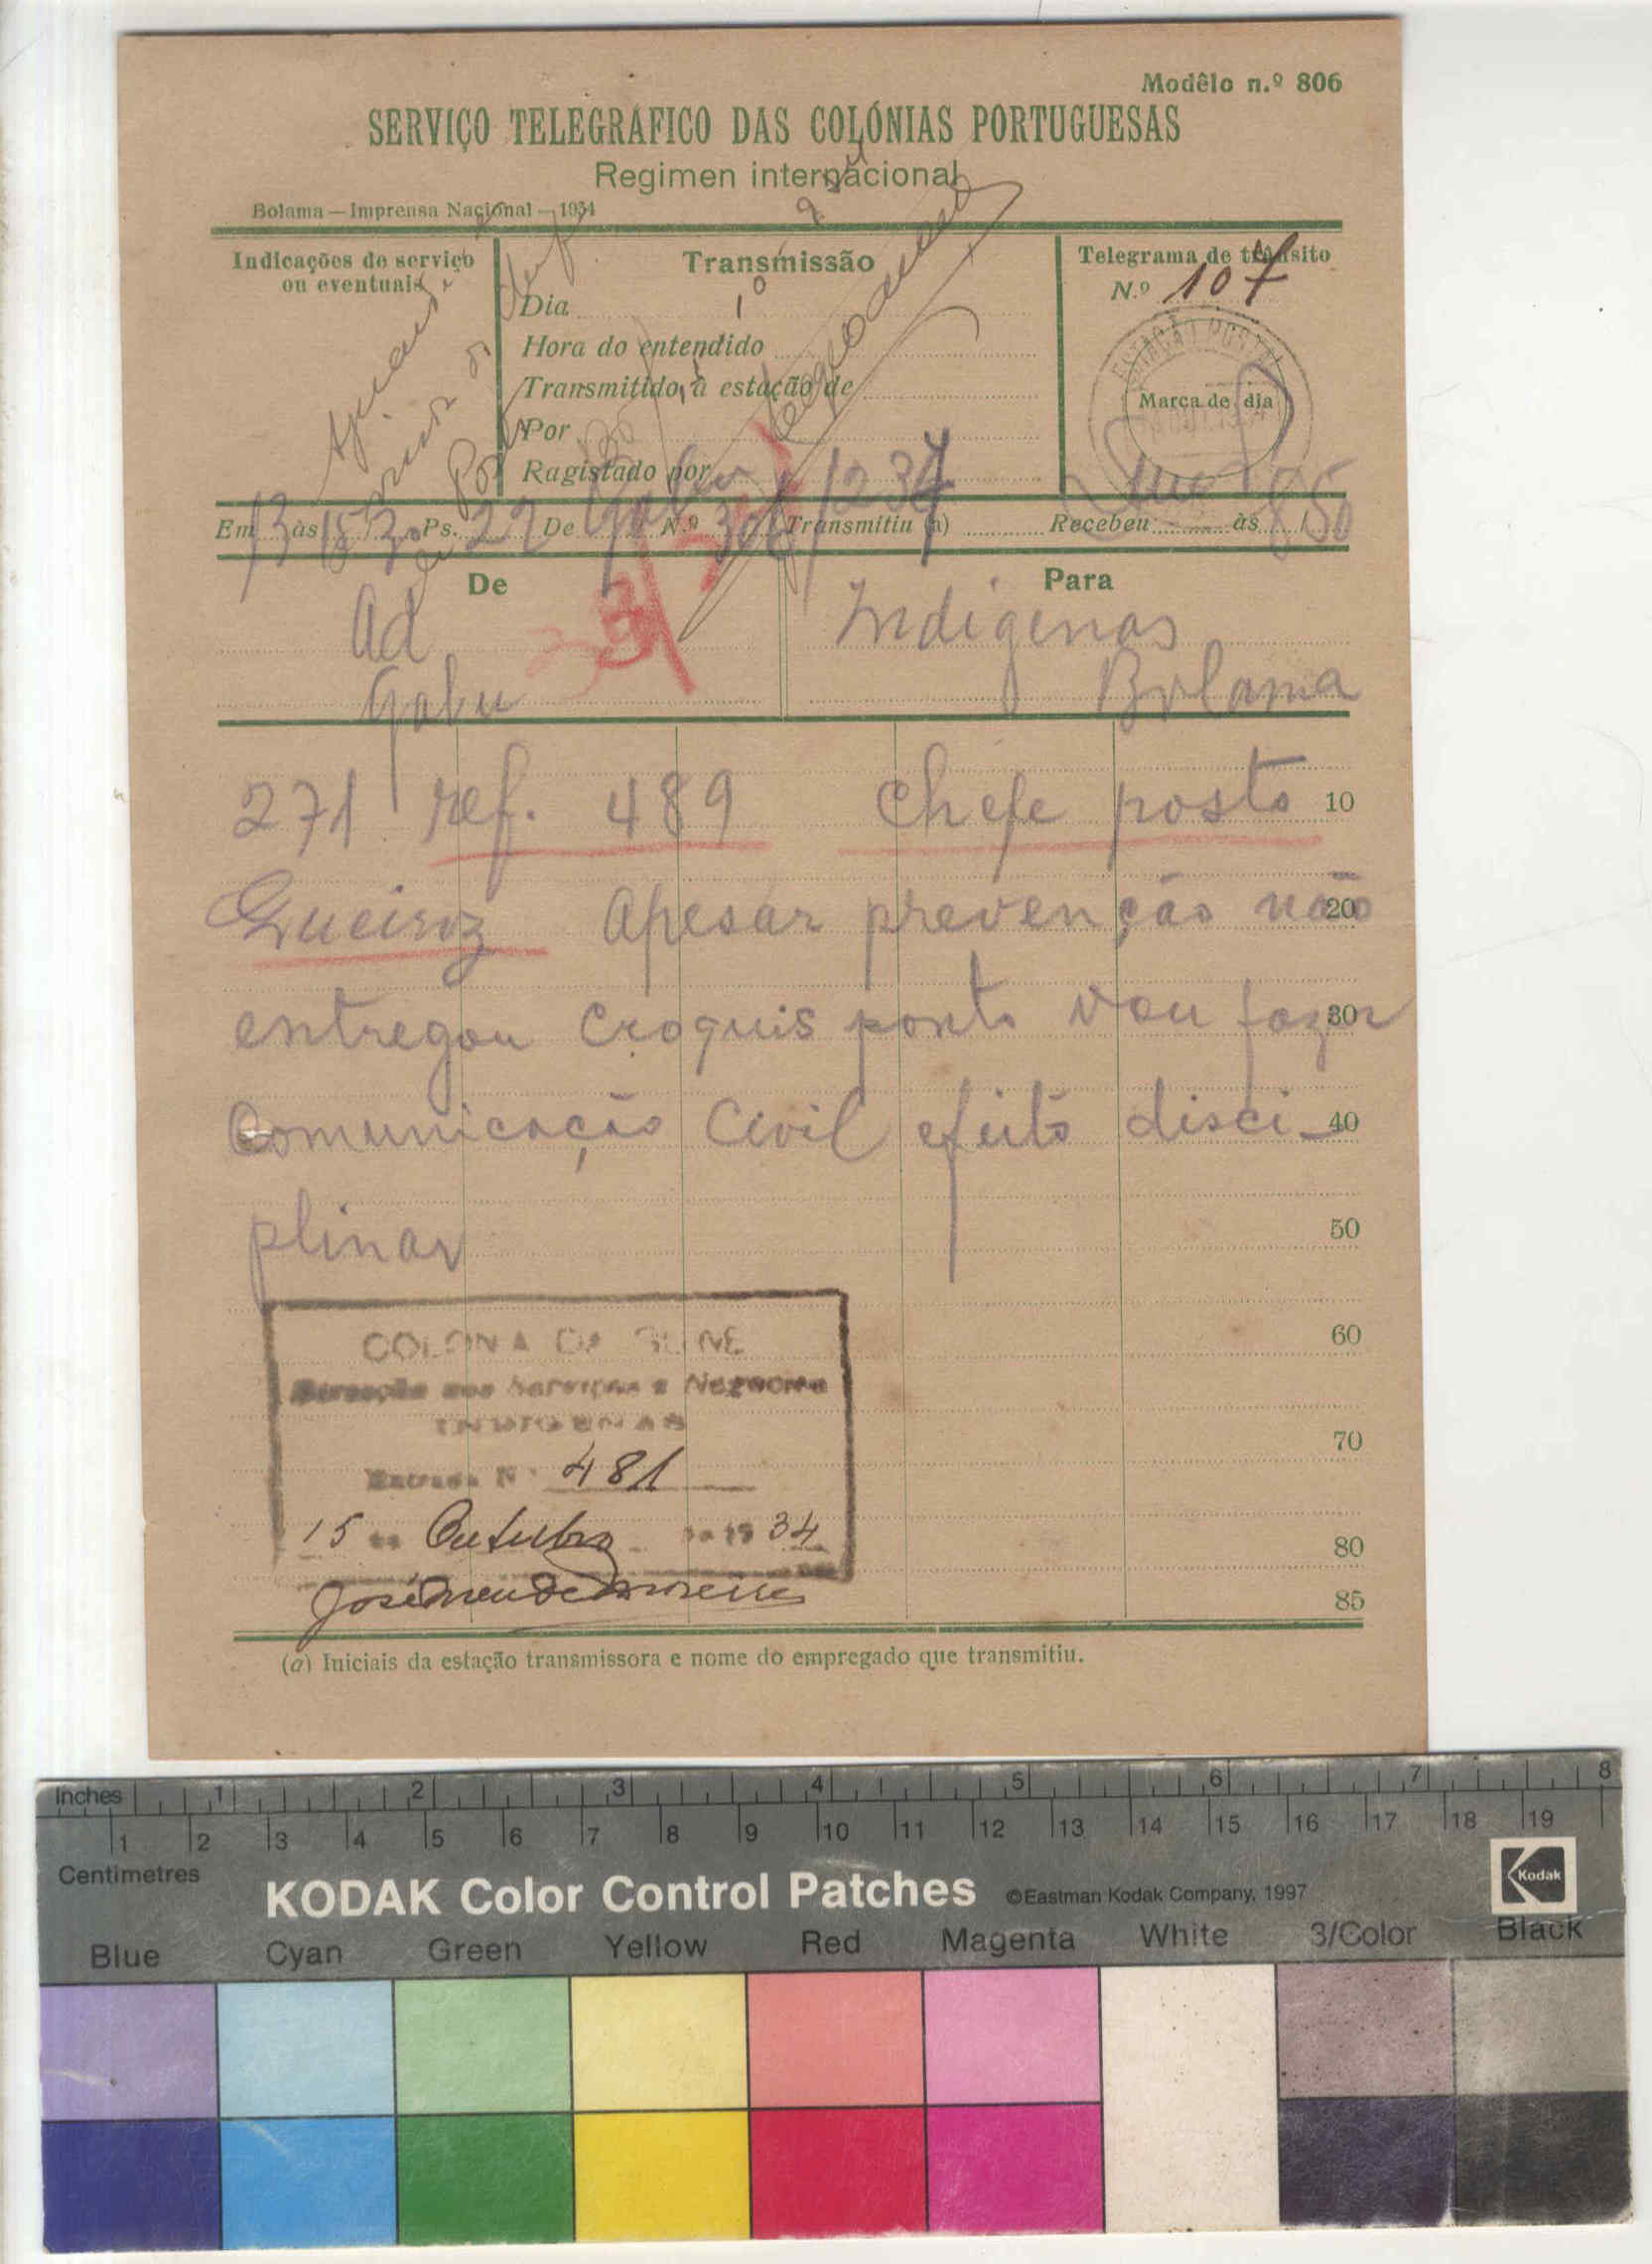 Modêlo n.º 806
SERVIÇO TELEGRÁFICO DAS COLÓNIAS PORTUGUESAS
Regimen internacional
Bolama — Imprensa Nacional — 1934
Indicações de serviço
ou eventuais
Transmissão
Dia
Hora do entendido
Transmitido à estação de
Por
Ragistado por
Telegrama de trânsito
N.º 107
ESTAÇÃO POSTAL
Marca de dia
Em 13 às 15 30 Ps. 22 De Gabu N.º 306 / 1237 Transmitiu (a) Recebeu às 1850
De
Para
Ad
Indigenas
Gabu
Bolama
271 ref. 489 Chefe posto 10
Queiroz Apesar prevenção não 20
entregou croquis ponto Vou fazer 30
Comunicação Civil efeito disci- 40
plinar
50
COLONIA DA GUINÉ
Direcção dos Serviços e Negocios
INDIGENAS
Entrada N.º 481
15 de Outubro de 1934
60
70
80
85
José Mendes Moreira
(a) Iniciais da estação transmissora e nome do empregado que transmitiu.
Inches 1 2 3 4 5 6 7 8
1 2 3 4 5 6 7 8 9 10 11 12 13 14 15 16 17 18 19
Centimetres
KODAK Color Control Patches ©Eastman Kodak Company, 1997 Kodak
Blue Cyan Green Yellow Red Magenta White 3/Color Black